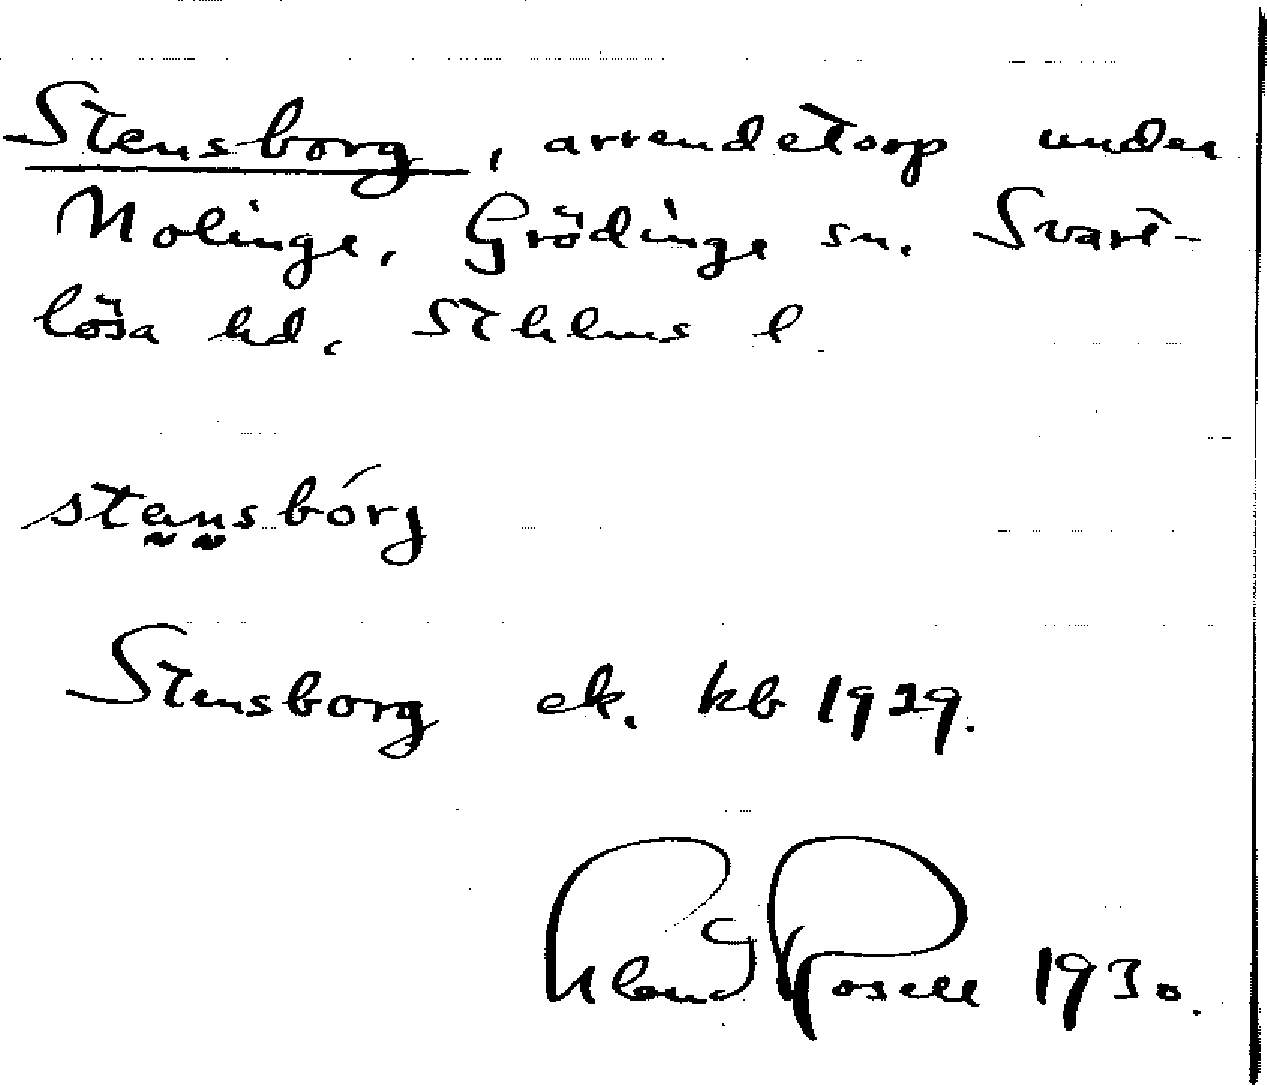 Stensborg, arrendetorp under
Nolinge, Grödinge sn. Svart-
lösa hd. Sthlms l.
stensbórg
Stensborg ek. kb 1929.
Rosell 1930.